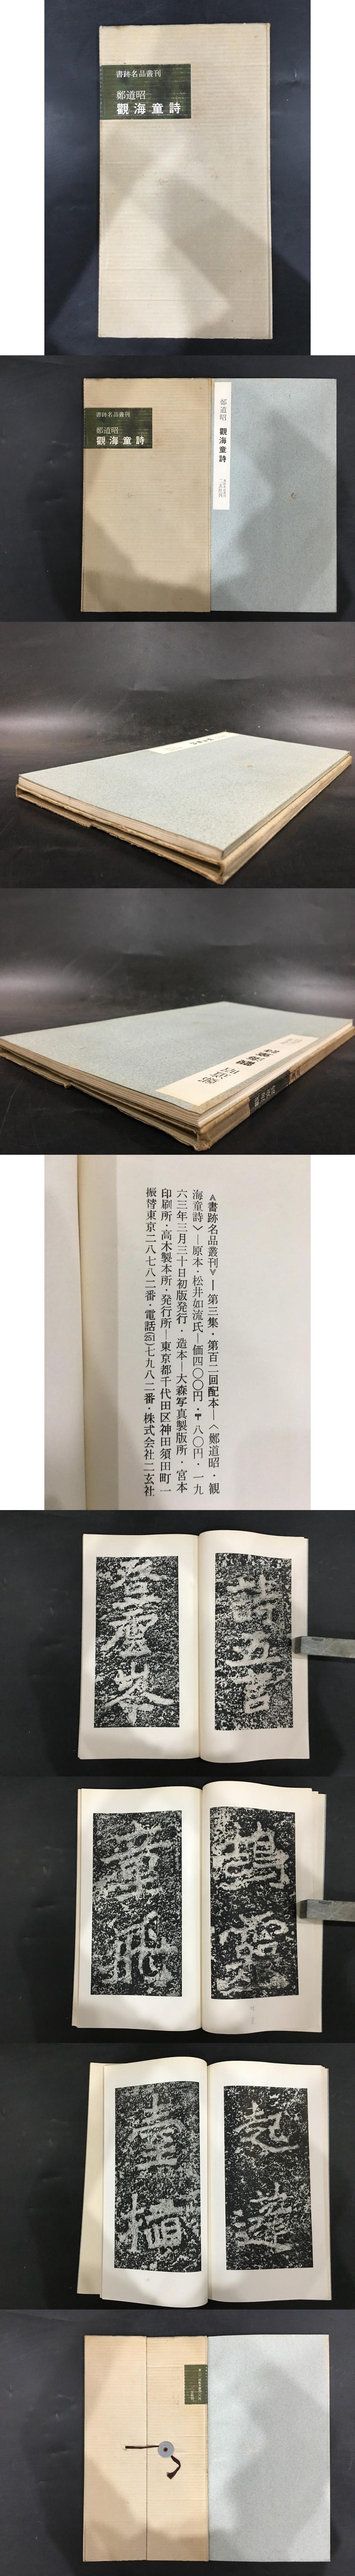 書跡名品叢刊
鄭道昭
觀海童詩
書跡名品叢刊
鄭道昭
觀海童詩
鄭道昭 觀海童詩
《書跡名品叢刊》—第三集・第百二回配本—〈鄭道昭・観
海童詩〉—原本・松井如流氏—価四〇〇円・〒八〇円・一九
六三年三月三十日初版発行・造本—大森写真製版所・宮本
印刷所・高木製本所・発行所—東京都千代田区神田須田町一
振替東京二八七八二番・電話(251)七九八二番・株式会社二玄社
詩五言
登雲峯
鵠露
章飛
起蓬
臺插